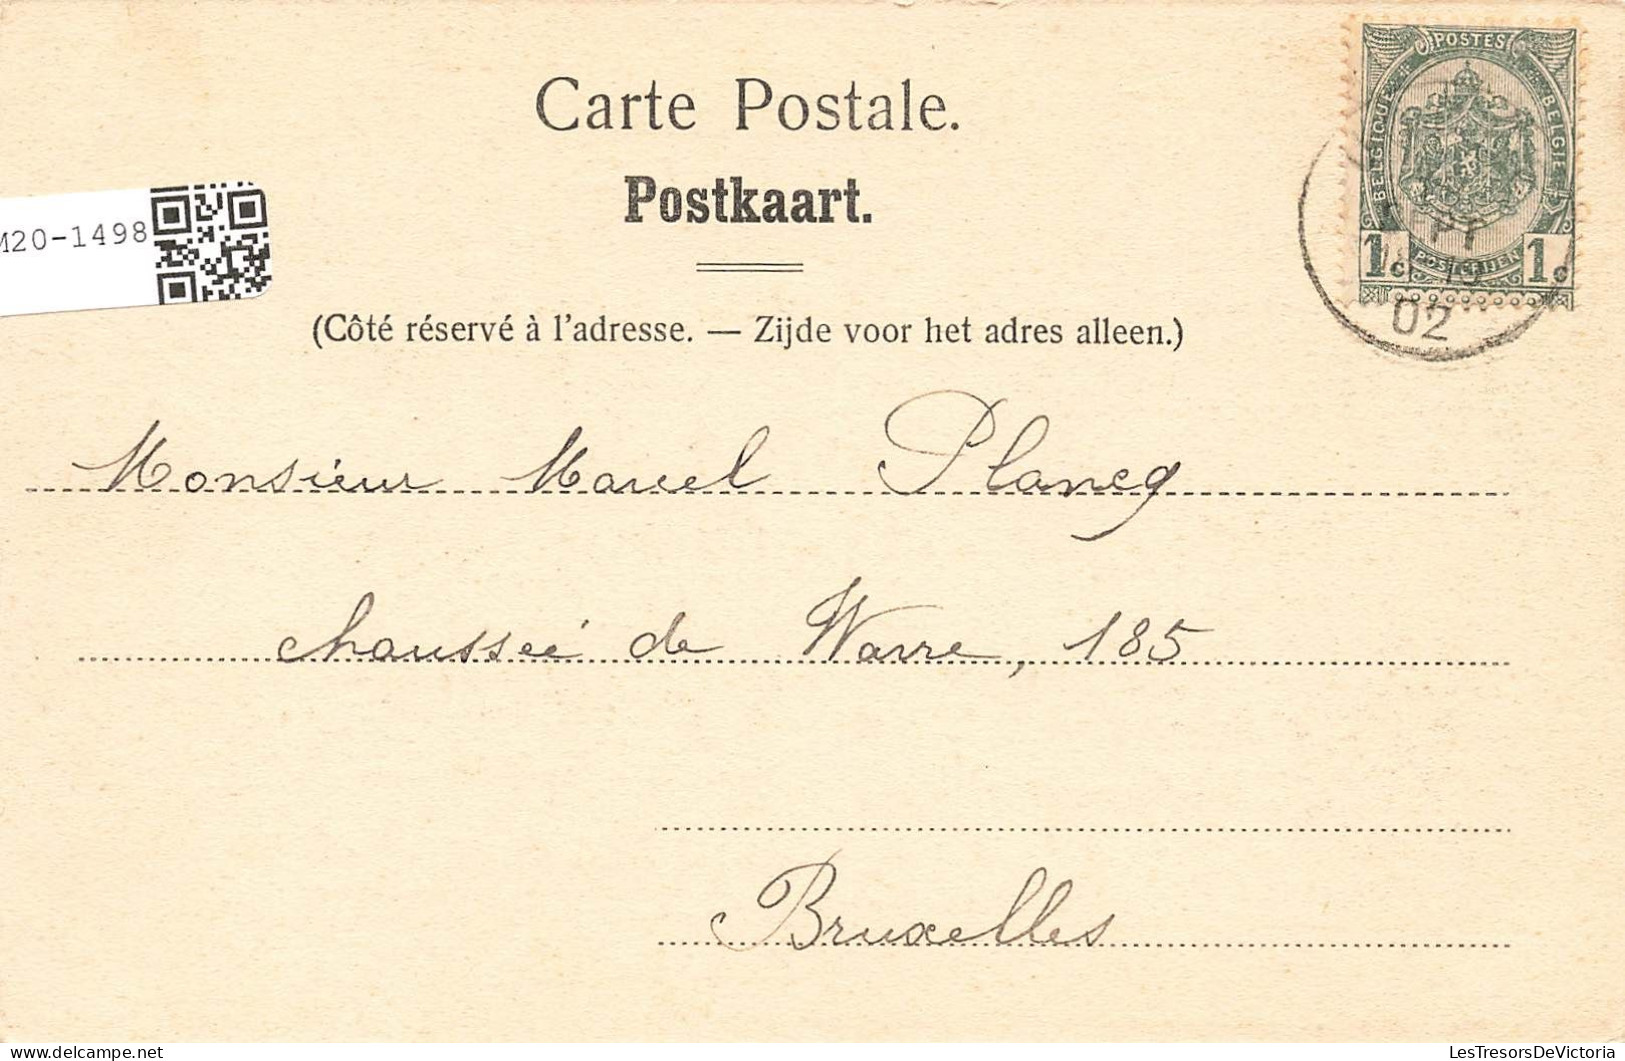 Carte Postale.
Postkaart.
M20-1498
(Côté réservé à l'adresse. — Zijde voor het adres alleen.)
POSTES
BELGIQUE
BELGIE
POSTERIJEN
1c 1c
02
Monsieur Marcel Plancq
chaussée de Wavre, 185
Bruxelles
LesTresorsDeVictoria